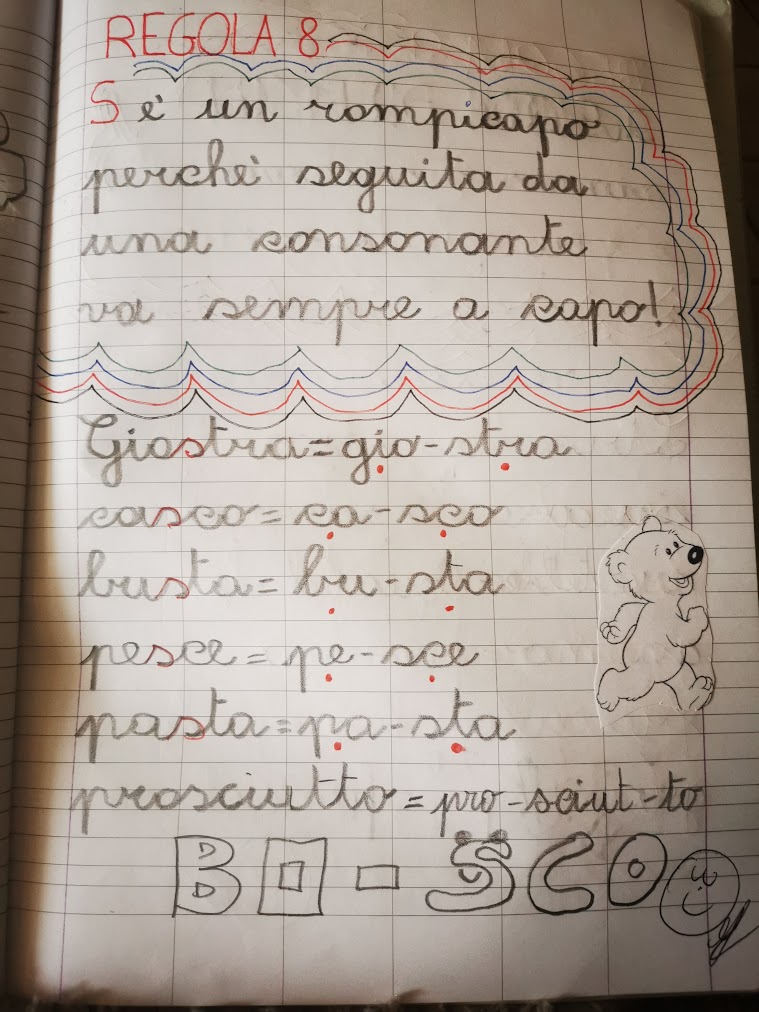 REGOLA 8
S è un rompicapo
perchè seguita da
una consonante
va sempre a capo!
Giostra=gio-stra
casco=ca-sco
busta=bu-sta
pesce=pe-sce
pasta=pa-sta
prosciutto=pro-sciut-to
BO-SCO